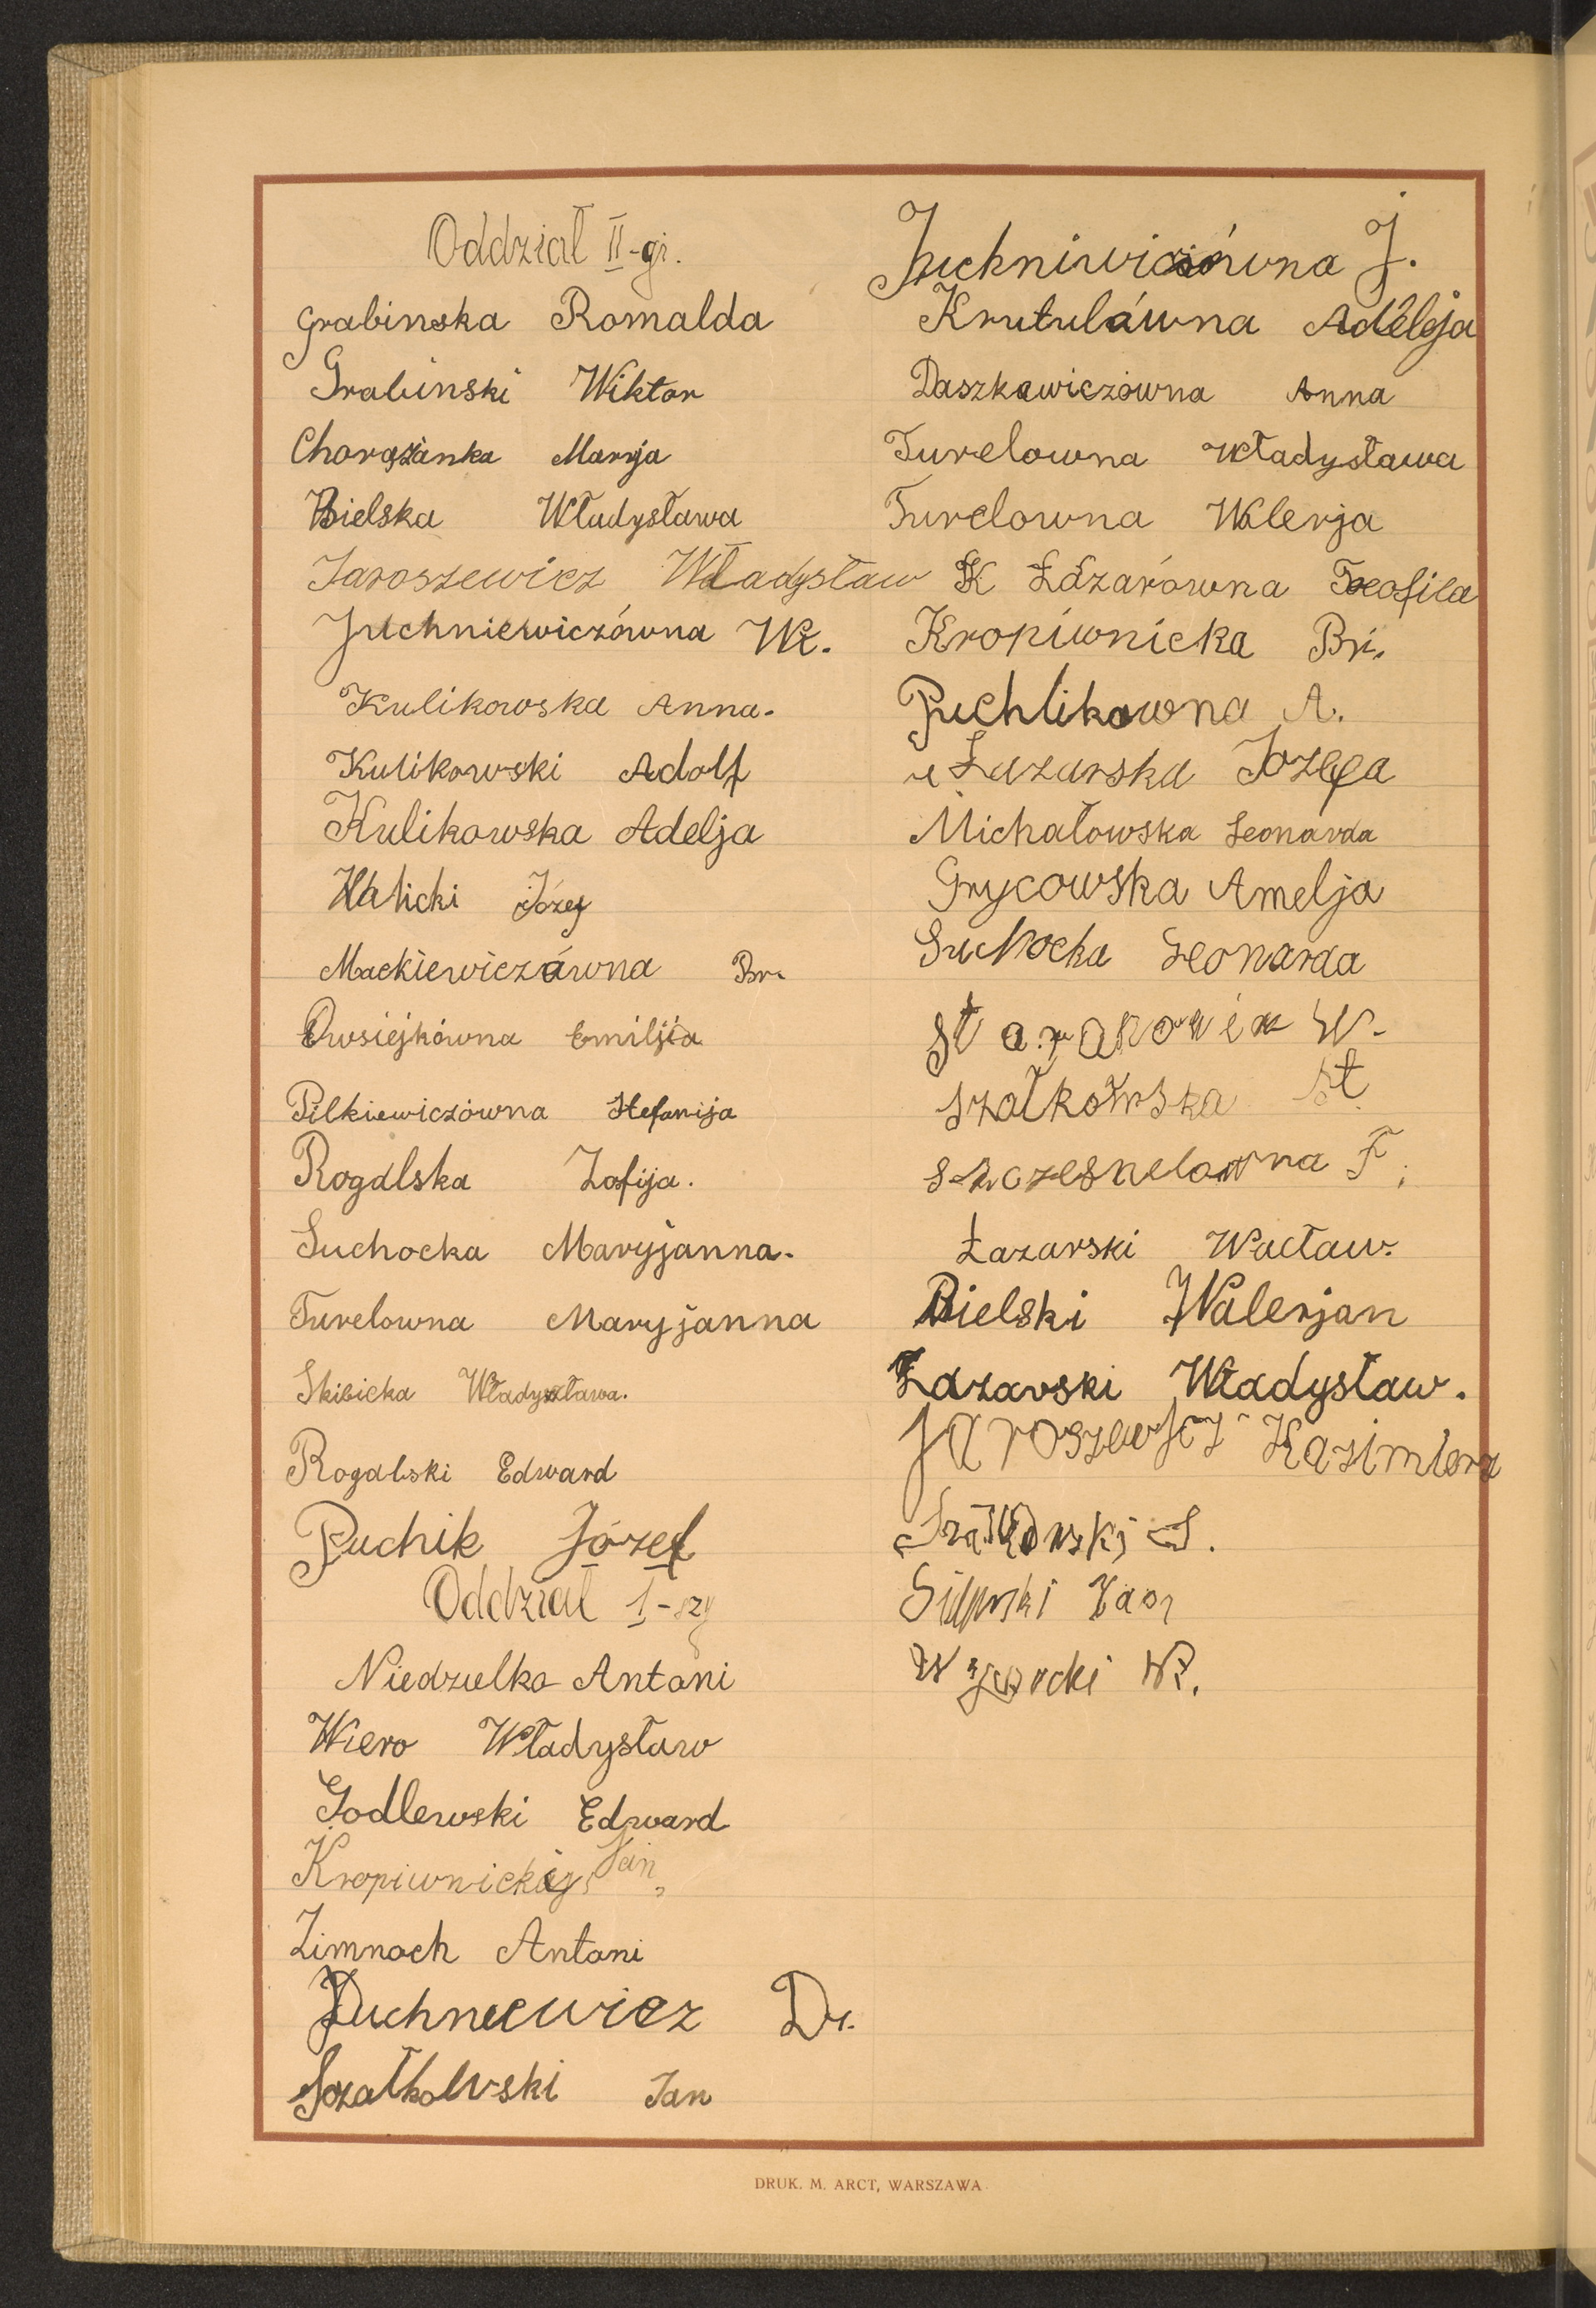 Oddział II-gi.
Grabinska Romalda
Grabinski Wiktor
Chorążanka Maryja
Bielska Władysława
Jaroszewicz Władysław
Juchniewiczówna Wł.
Kulikowska Anna.
Kulikowski Adolf
Kulikowska Adelja
Halicki Józef
Mackiewiczówna Br.
Owsiejkówna Emilja
Pilkiewiczówna Stefanija
Rogalska Zofija.
Suchocka Maryjanna.
Turelowna Maryjanna
Skibicka Władysława.
Rogalski Edward
Puchlik Józef
Oddział I-szy
Niedzielko Antoni
Wiero Władysław
Godlewski Edward
Kropiwnicki Jan
Zimnoch Antoni
Juchniewicz Dr.
Szatkowski Jan
Juchniwiczówna J.
Krutulówna Adelja
Daszkiewiczówna Anna
Turelowna Władysława
Turelowna Walerja
K Łazarówna Teofila
Kropiwnicka Br.
Puchlikowna A.
Łazarska Józefa
Michałowska Leonarda
Grycowska Amelja
Suchocka Leonarda
W.
Szatkowska St
Szczesnelowna F.
Łazarski Wacław.
Bielski Walerjan
Łazarski Władysław.
Jaroszewicz Kazimierz
Szatkowski S.
Wysocki W.
DRUK. M. ARCT, WARSZAWA